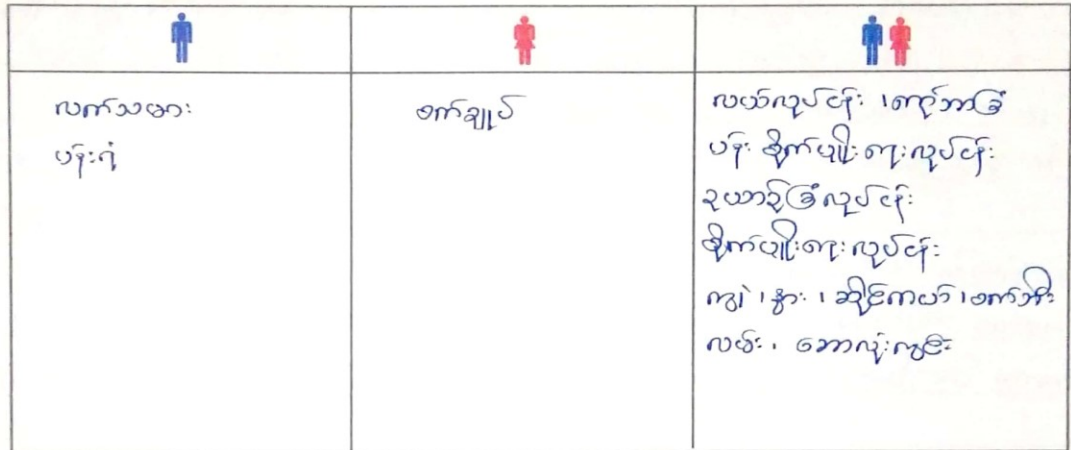 လက်သမား
ပန်းရံ
စက်ချုပ်
လယ်လုပ်ငန်း ၊ ကော်ဘာခြံ
ပန်း စိုက်ပျိုးရေးလုပ်ငန်း
ဥယာဉ်ခြံလုပ်ငန်း
စိုက်ပျိုးရေးလုပ်ငန်း
ကျွဲ ၊ နွား ၊ ဆိုင်ကယ် ၊ စက်ဘီး
လမ်း ၊ ဘောလုံးကွင်း